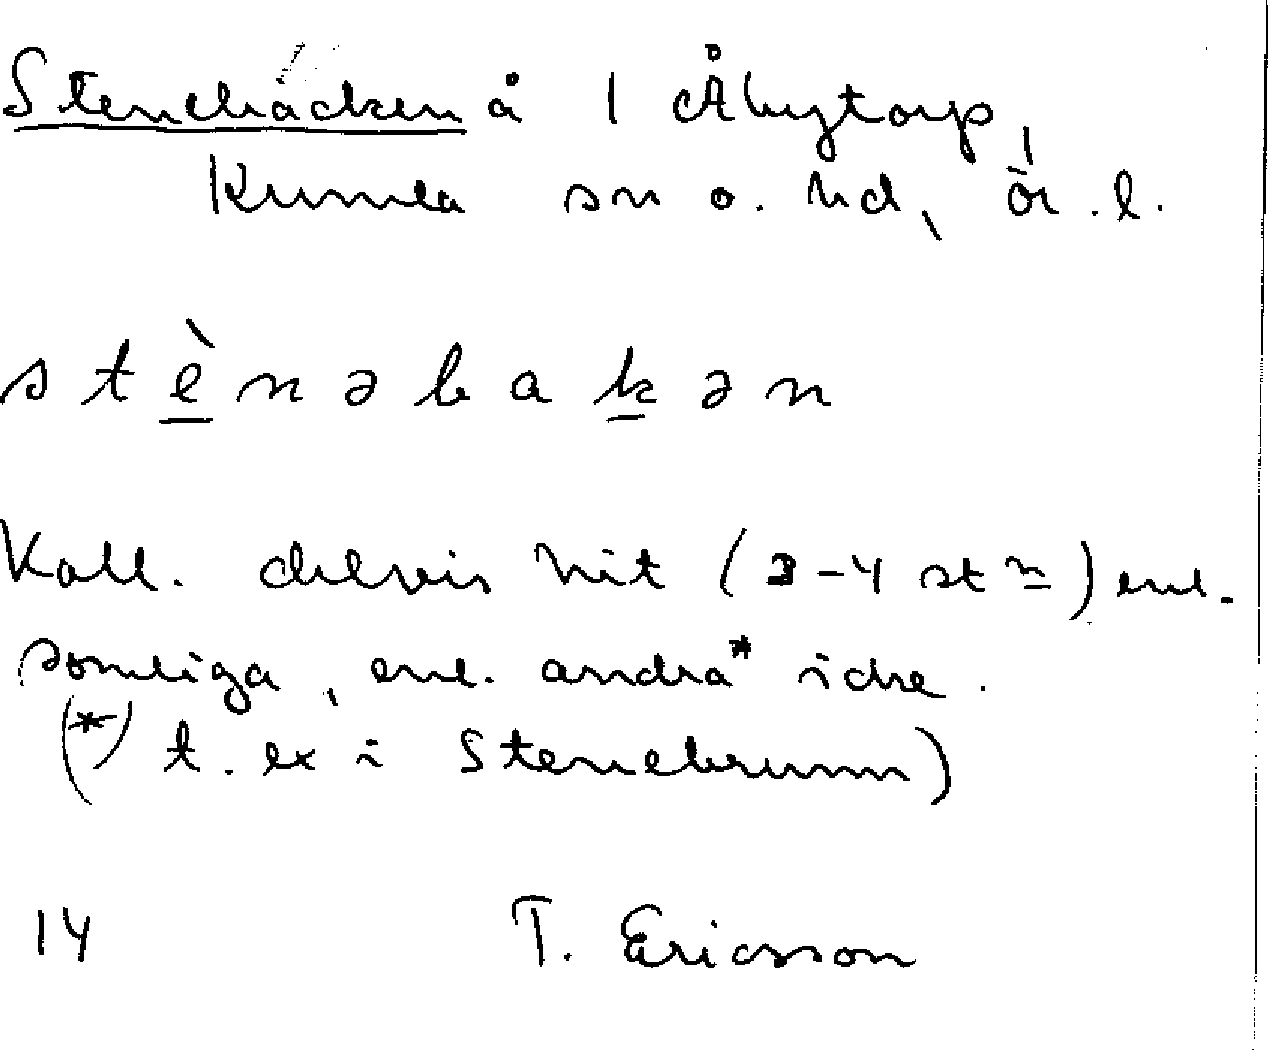 Stenebacken å 1 Åbytorp,
Kumla sn o. hd, ör. l.
s t è n ə b a k ə n
Kall. delvis hit (3-4 st n) enl.
somliga, enl. andra* icke.
(*) t. ex i Stenebrunn)
14 T. Ericsson